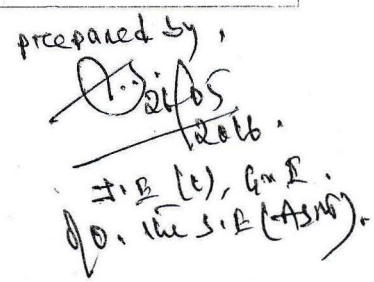 prepared by,
26/05
2016.
J.E (t), G & E.
O/o. the S.E (ASNT).